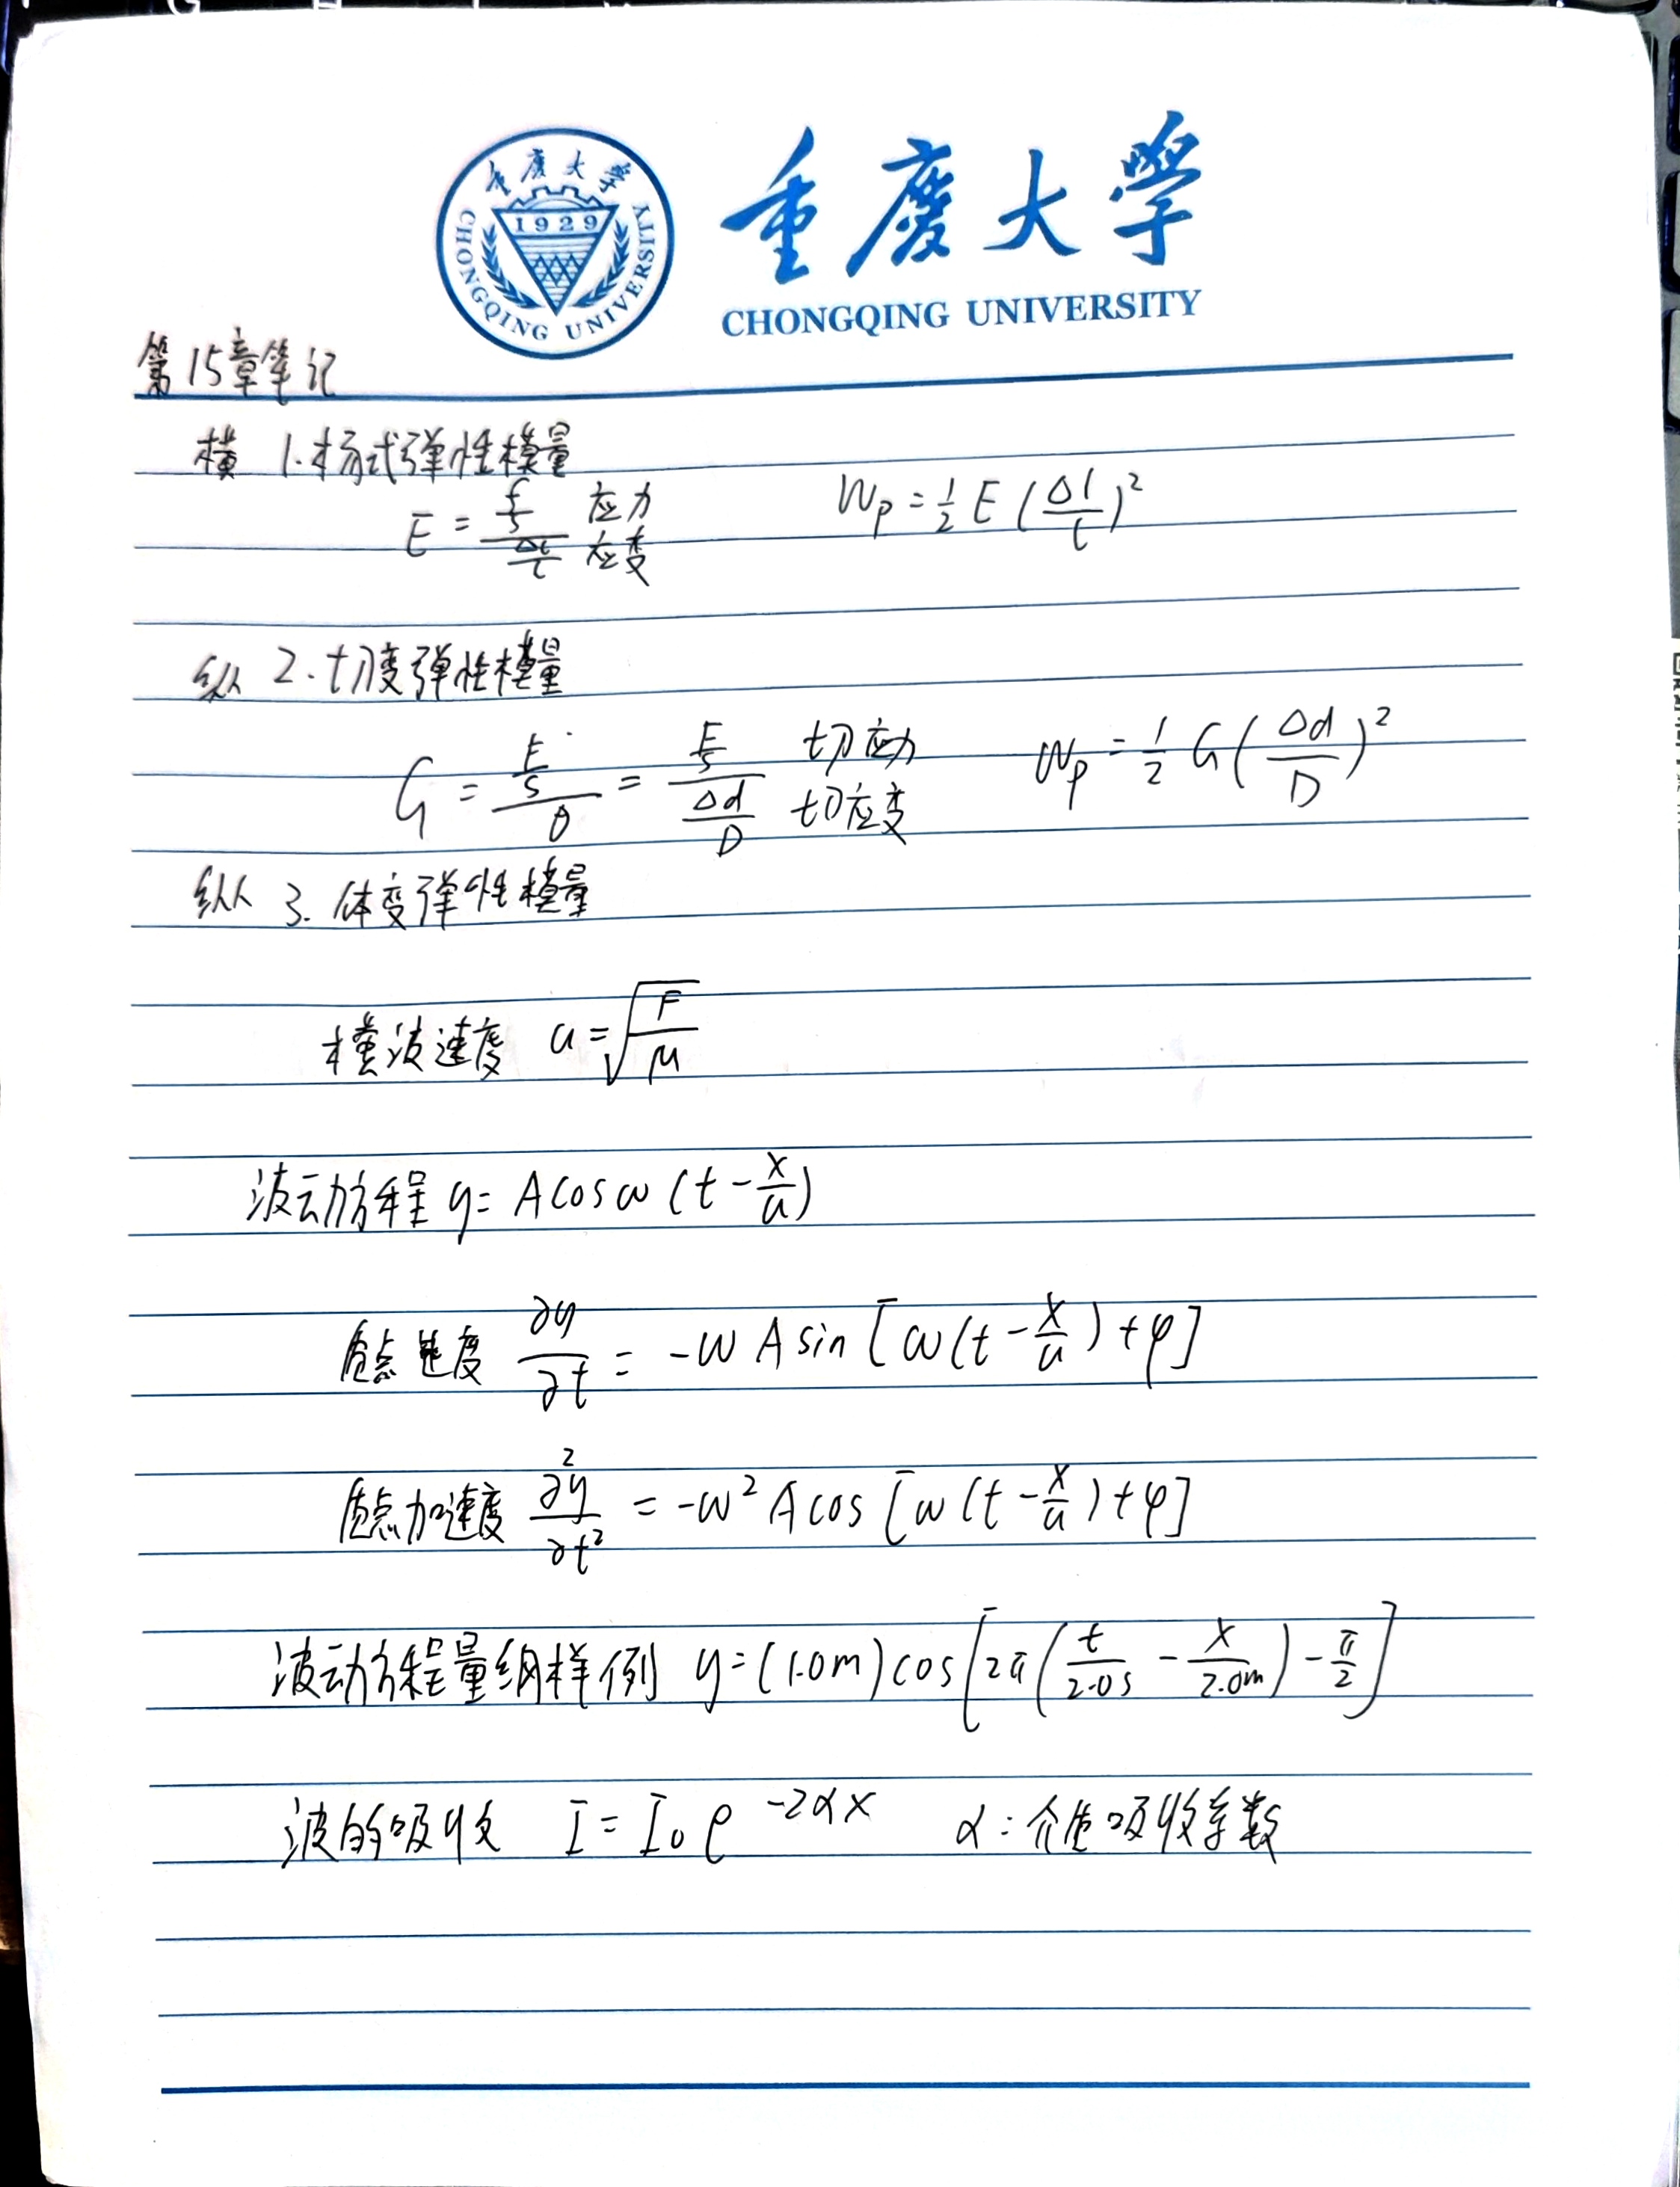 重慶大學
CHONGQING UNIVERSITY
重慶大學
1929
CHONGQING UNIVERSITY
第15章笔记
横 1.杨式弹性模量
E = (f/s)/(Δl/l) 应力 应变 Wp = 1/2 E (Δl/l)²
纵 2.切变弹性模量
G = (F/S)/θ = (F/S)/(Δd/D) 切应力 切应变 Wp = 1/2 G (Δd/D)²
纵 3.体变弹性模量
横波速度 u = √(F/μ)
波动方程 y = A cos ω (t - x/u)
质点速度 ∂y/∂t = -ω A sin [ω(t - x/u) + φ]
质点加速度 ∂²y/∂t² = -ω² A cos [ω(t - x/u) + φ]
波动方程量纲样例 y = (1.0m) cos [2π (t/2.0s - x/2.0m) - π/2]
波的吸收 I = I₀ e^(-2αx) α:介质吸收系数